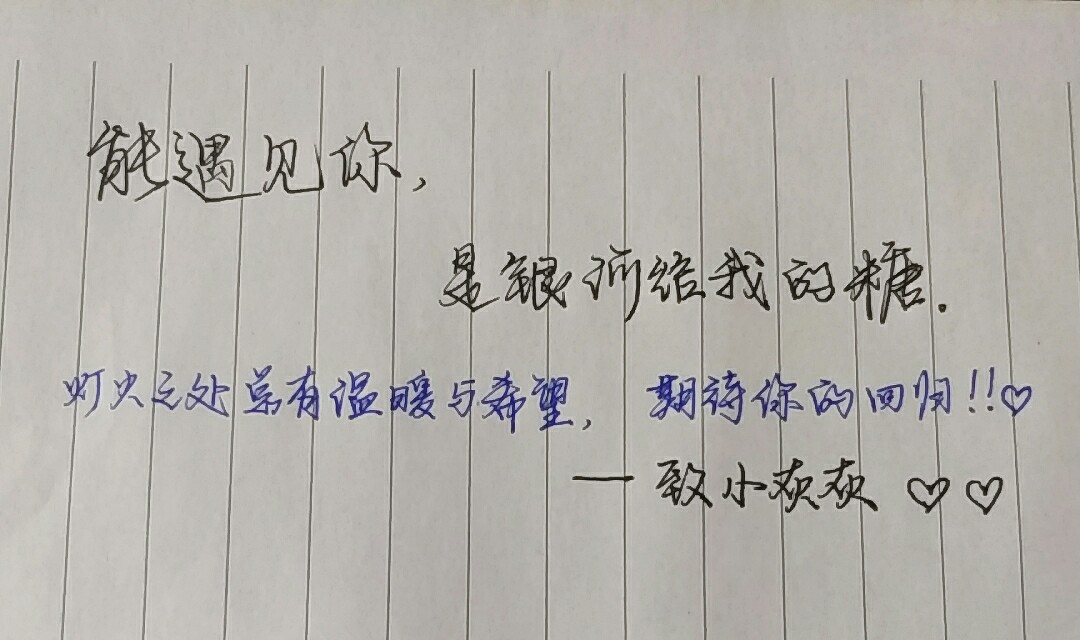 能遇见你,
是银河给我的糖.
灯火之处总有温暖与希望, 期待你的回归!!♡
—致小灰灰 ♡♡